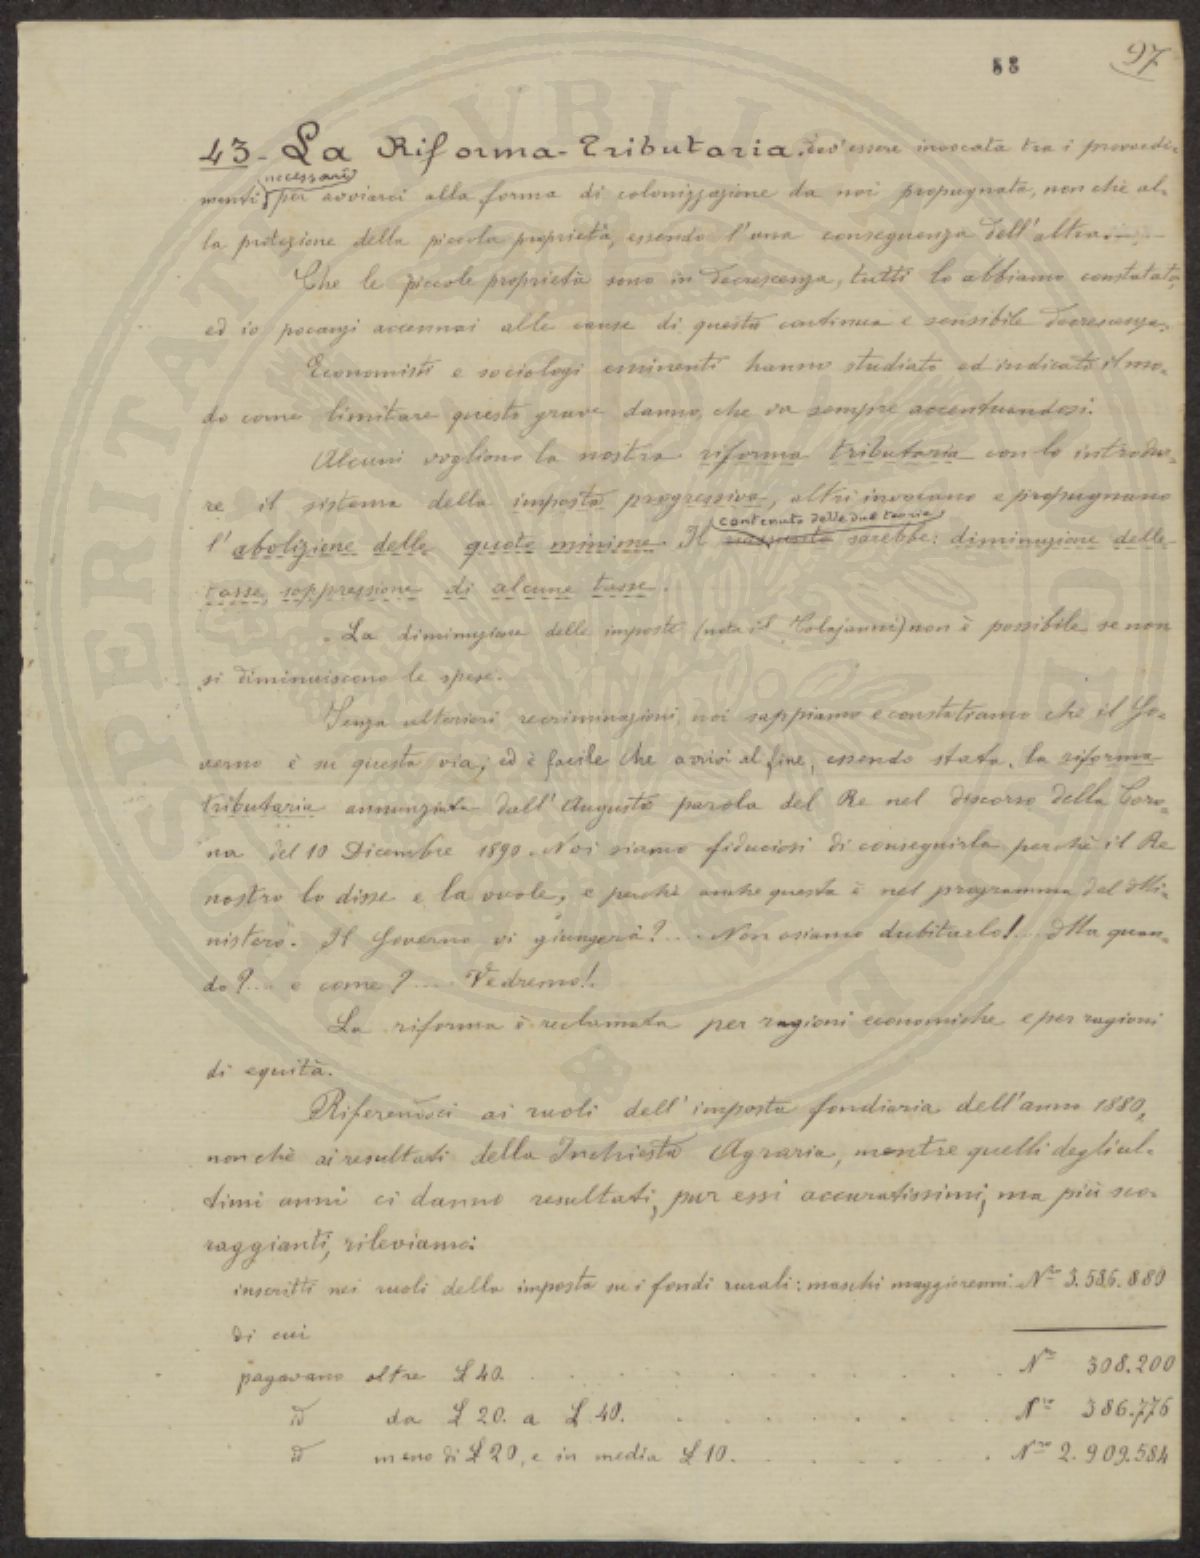 88 97
43 - La Riforma-Tributaria. dev'essere invocata tra i provvedi-
necessarî
menti per avviarci alla forma di colonizzazione da noi propugnata, non chè al-
la protezione della piccola proprietà, essendo l'una conseguenza dell'altra.—
Che le piccole proprietà sono in decrescenza, tutti lo abbiamo constatato,
ed io pocanzi accennai alle cause di questa continua e sensibile decrescenza.
Economisti e sociologi eminenti hanno studiato ed indicato il mo-
do come limitare questo grave danno, che va sempre accentuandosi.
Alcuni vogliono la nostra riforma tributaria con lo introdur-
re il sistema della imposta progressiva, altri invocano e propugnano
contenuto delle due teorie
l'abolizione delle quote minime. Il sarebbe: diminuzione delle
tasse, soppressione di alcune tasse.
La diminuzione delle imposte (nota il Colajanni) non è possibile se non
si diminuiscono le spese.
Senza ulteriori recriminazioni, noi sappiamo e constatiamo che il Go-
verno è su questa via; ed è facile che arrivi al fine, essendo stata la riforma
tributaria annunziata dall'Augusta parola del Re nel discorso della Coro-
na del 10 Dicembre 1890. Noi siamo fiduciosi di conseguirla perchè il Re
nostro lo disse e la vuole, e perchè anche questa è nel programma del Mi-
nistero. Il Governo vi giungerà?.... Non osiamo dubitarlo!... Ma quan-
do?... e come?.... Vedremo!.
La riforma è reclamata per ragioni economiche e per ragioni
di equità.
Riferendoci ai ruoli dell'imposta fondiaria dell'anno 1880,
nonchè ai resultati della Inchiesta Agraria, mentre quelli degli ul-
timi anni ci danno resultati, pur essi accuratissimi, ma più sco-
raggianti, rileviamo:
inscritti nei ruoli della imposta su i fondi rurali: maschi maggiorenni. Nro 3.586.880
di cui
pagavano oltre £ 40. . . . . . . . . Nro 308.200
id da £ 20. a £ 40. . . . . . . . . Nro 386.776
id meno di £ 20, e in media £ 10. . . . . . . Nro 2.909.584
PROSPERITATI PVBLICAE